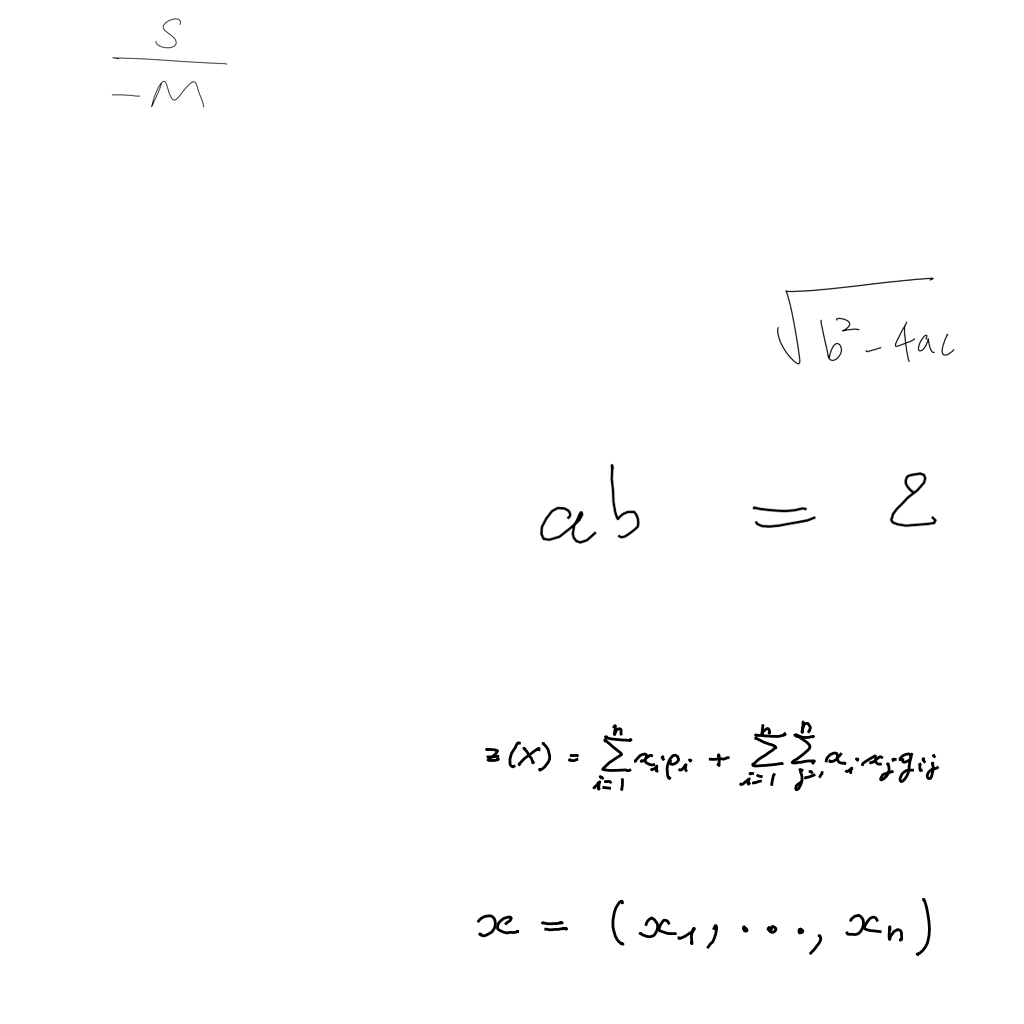 \frac{s}{-M}
\sqrt{b^2-4ac}
ab = 2
z(X) = \sum_{i=1}^{n} x_i p_i + \sum_{i=1}^{n} \sum_{j=1}^{n} x_i x_j g_{ij}
x = (x_1, ..., x_n)